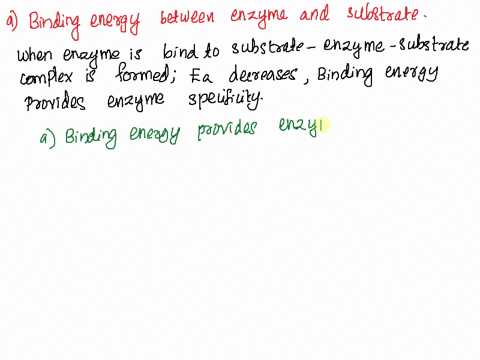 a) Binding energy between enzyme and substrate.
when enzyme is bind to substrate - enzyme - substrate
complex is formed; Ea decreases, Binding energy
Provides enzyme specificity.
a) Binding energy provides enzy